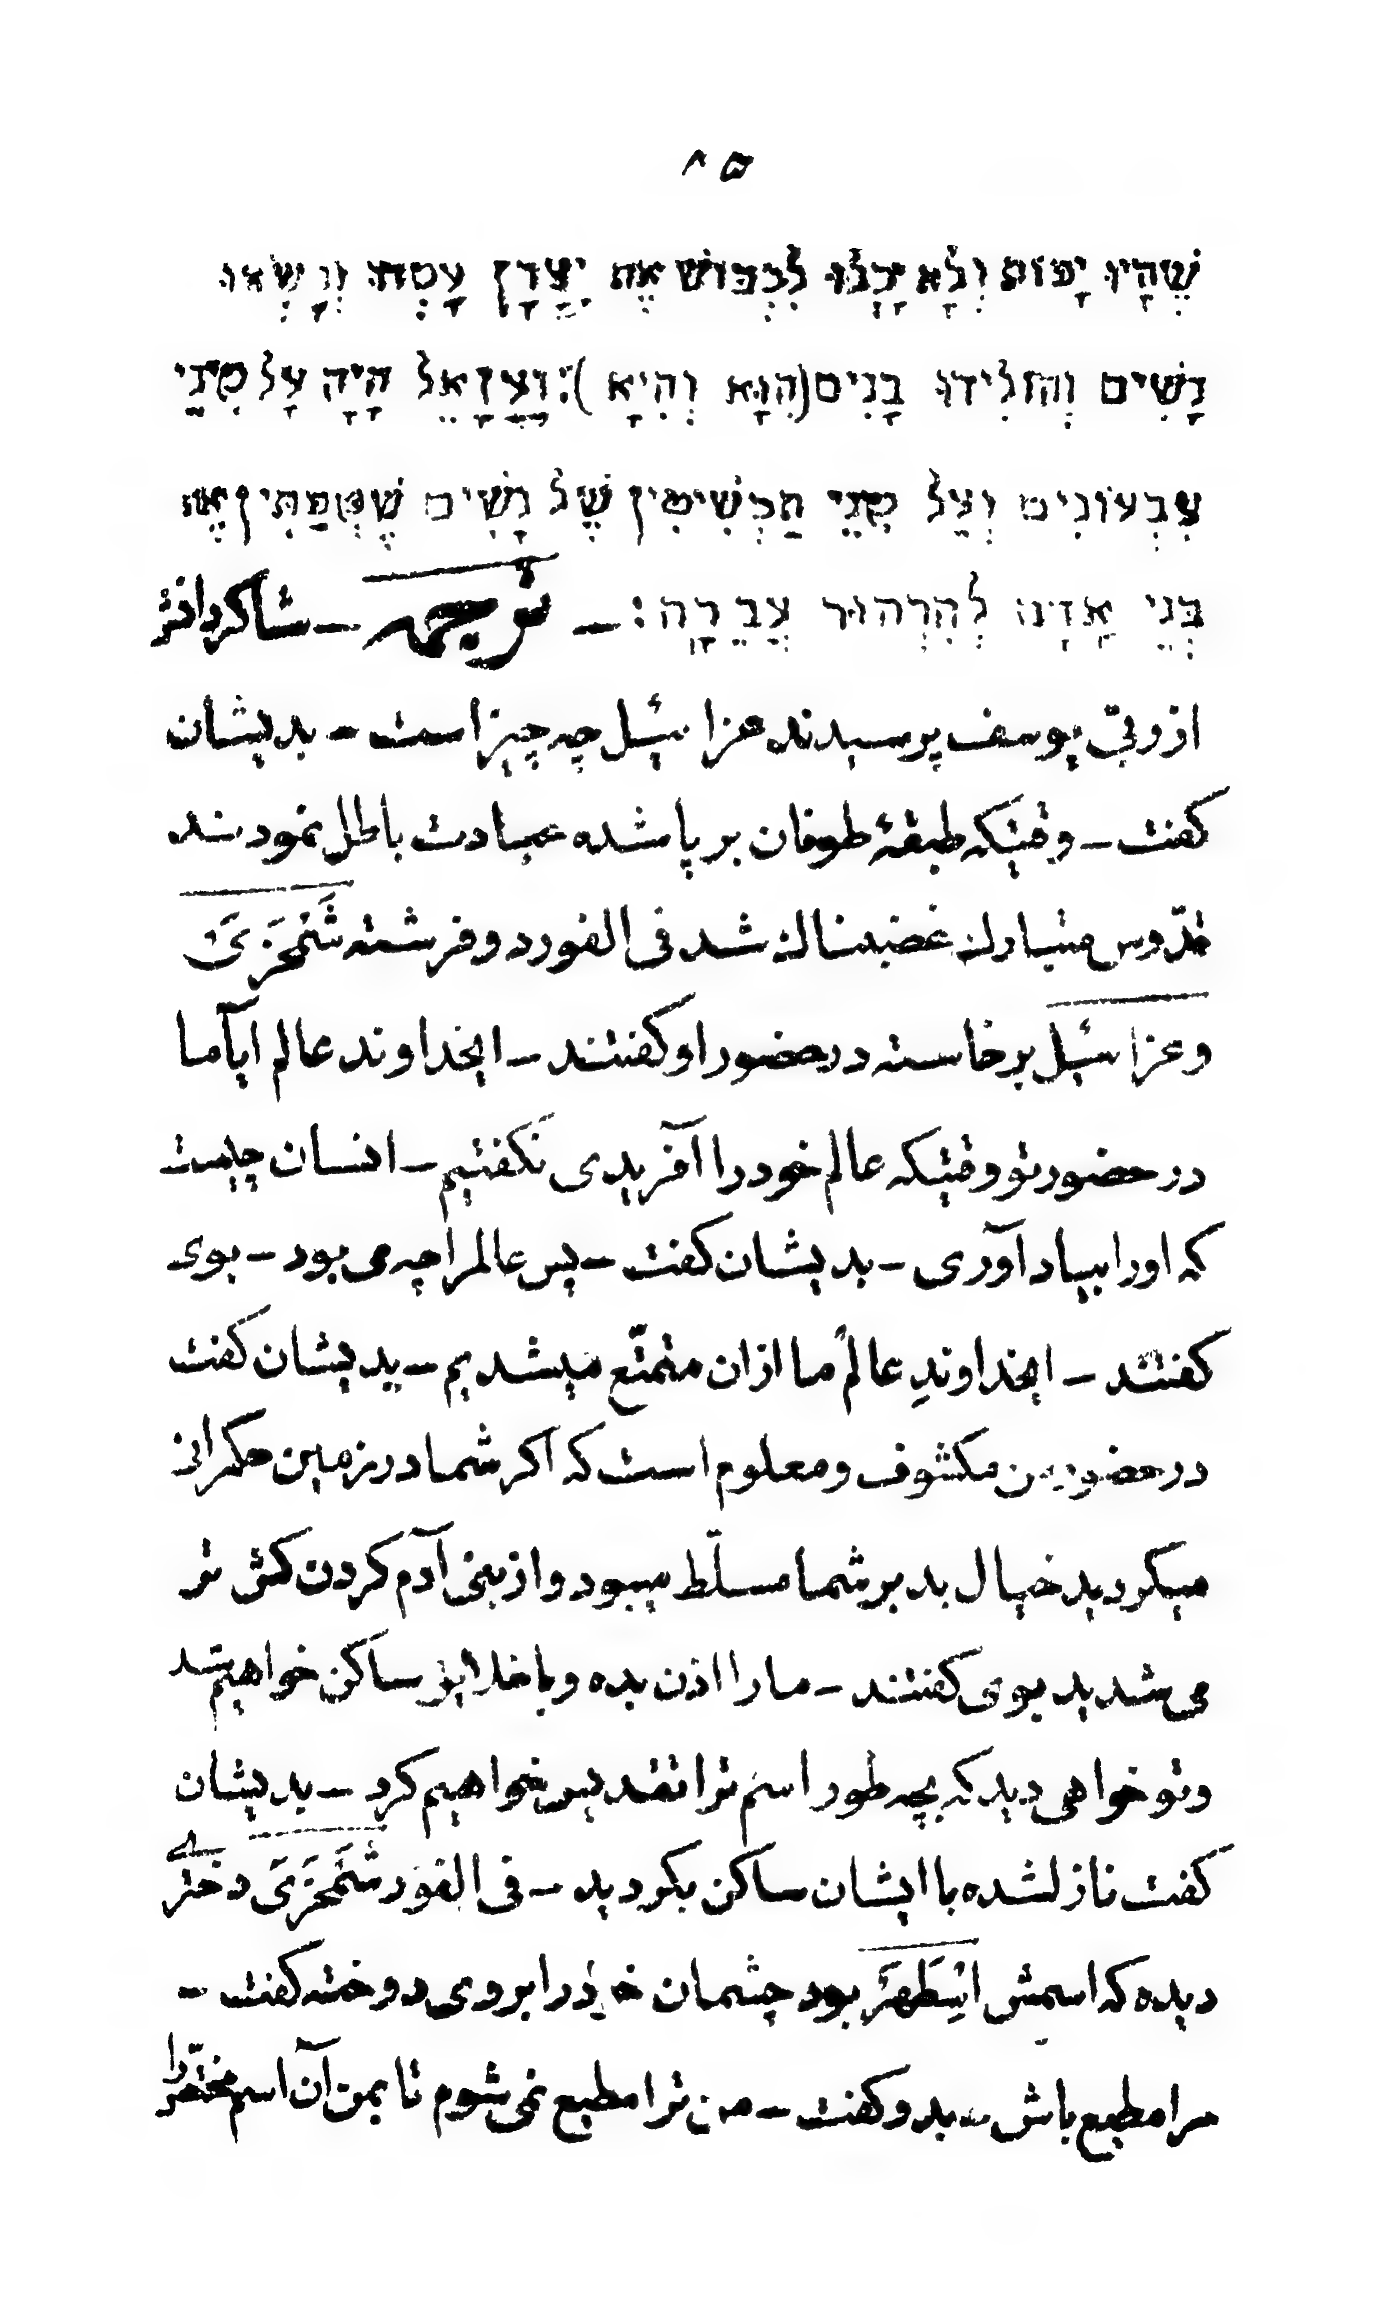 ٨٥
שֶׁהָיוּ יָפוֹת וְלָא יָכְלוּ לִכְבּוֹשׁ אֶת יִצְרָן עָמְדוּ וְנָשְׂאוּ
נָשִׁים וְהוֹלִידוּ בָּנִים (הִוָּא וְהִיָא): וַעֲזָאֵל הָיָה עָל מִינֵי
צִבְעוֹנִים וְעַל מִינֵי תַכְשִׁיטִין שֶׁל נָשִׁים שֶׁמְּפַתִּין אֶת
בְּנֵי אָדָם לְהִרְהוּר עֲבֵרָה: — ترجمه — شاکردانش
از ربّی یوسف پرسیدند عزائیل چه چیز است — بدیشان
کفت — وقتیکه طبقۀ طوفان برپا شده عبادت باطل نمودند
قدّوس متبارك غضبناك شد فی الفور دو فرشته شَمْحَزَیَ
وعزائیل برخاسته درحضور او کفتند — ایخداوند عالم ایآما
درحضور تو وقتیکه عالم خود را آفریدی نکفتیم — انسان چیست
که اورا بیاد آوری — بدیشان کفت — پس عالمرا چه می بود — بوی
کفتند — ایخداوندِ عالم ما ازان متمتّع میشدیم — بدیشان کفت
درحضور من مکشوف ومعلوم است که اکر شما درزمین حکمرانی
میکردید خیال بد برشما مسلّط میبود واز بنی آدم کردن کش تر
می شدید بوی کفتند — مارا اذن بده وبا خلایق ساکن خواهیم شد
وتو خواهی دید که بچه طور اسم ترا تقدیس خواهیم کرد — بدیشان
کفت نازلشده باایشان ساکن بکردید — فی الفور شَمْحَزَیَ دختری
دیده که اسمش اِسْطَهَر بود چشمان خودرا بروی دوخته کفت —
مرا مطیع باش — بدو کفت — من ترا مطیع نمی شوم تا بمن آن اسم مختصّ را